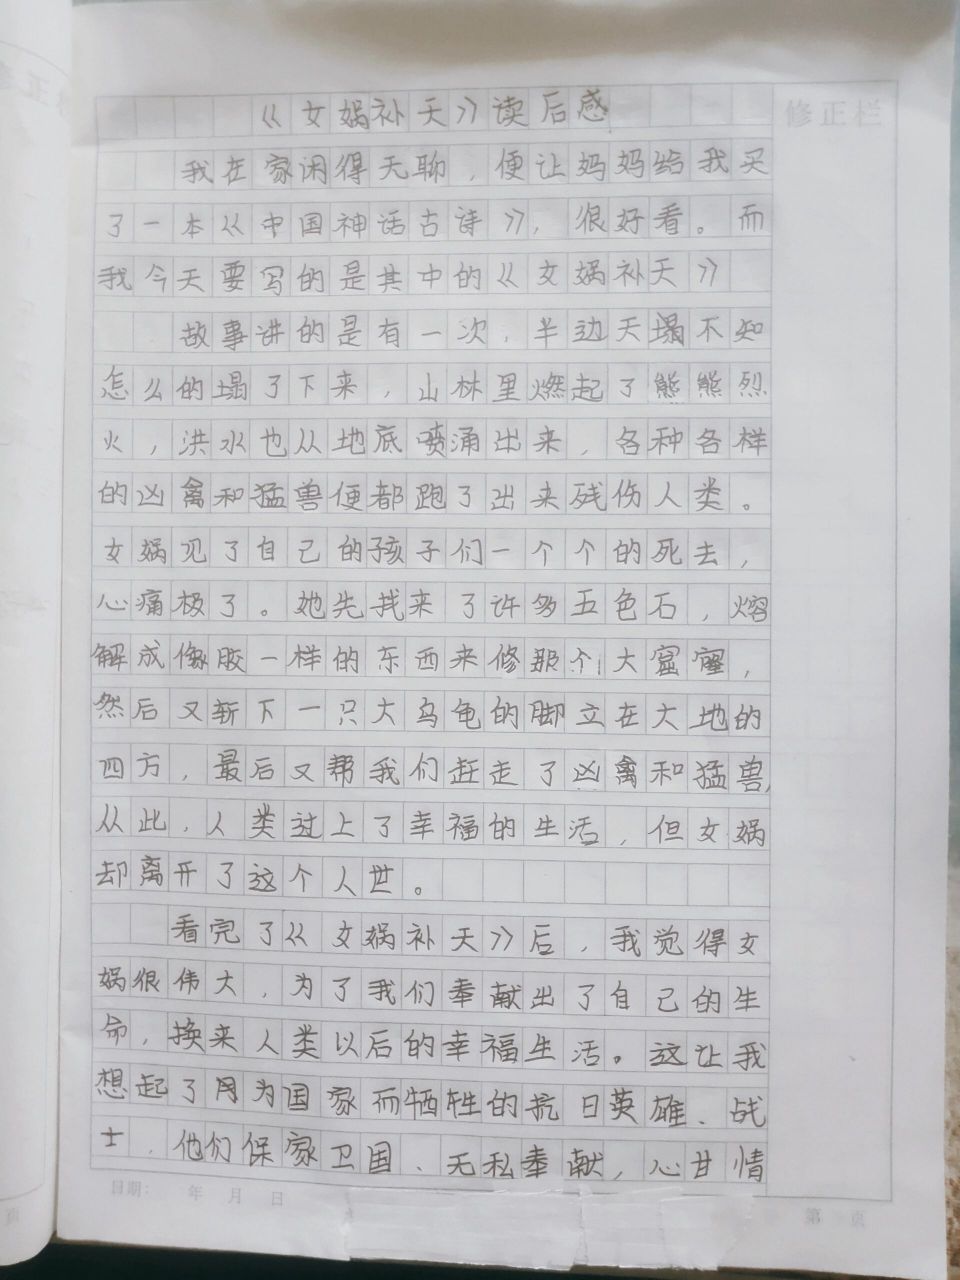 《女娲补天》读后感
修正栏
我在家闲得无聊，便让妈妈给我买
了一本《中国神话古诗》，很好看。而
我今天要写的是其中的《女娲补天》
故事讲的是有一次，半边天塌不知
怎么的塌了下来，山林里燃起了熊熊烈
火，洪水也从地底喷涌出来，各种各样
的凶禽和猛兽便都跑了出来残伤人类。
女娲见了自己的孩子们一个个的死去，
心痛极了。她先找来了许多五色石，熔
解成像胶一样的东西来修那个大窟窿，
然后又斩下一只大乌龟的脚立在大地的
四方，最后又帮我们赶走了凶禽和猛兽，
从此，人类过上了幸福的生活，但女娲
却离开了这个人世。
看完了《女娲补天》后，我觉得女
娲很伟大，为了我们奉献出了自己的生
命，换来人类以后的幸福生活。这让我
想起了为国家而牺牲的抗日英雄、战
士，他们保家卫国、无私奉献，心甘情
日期： 年 月 日
第 页